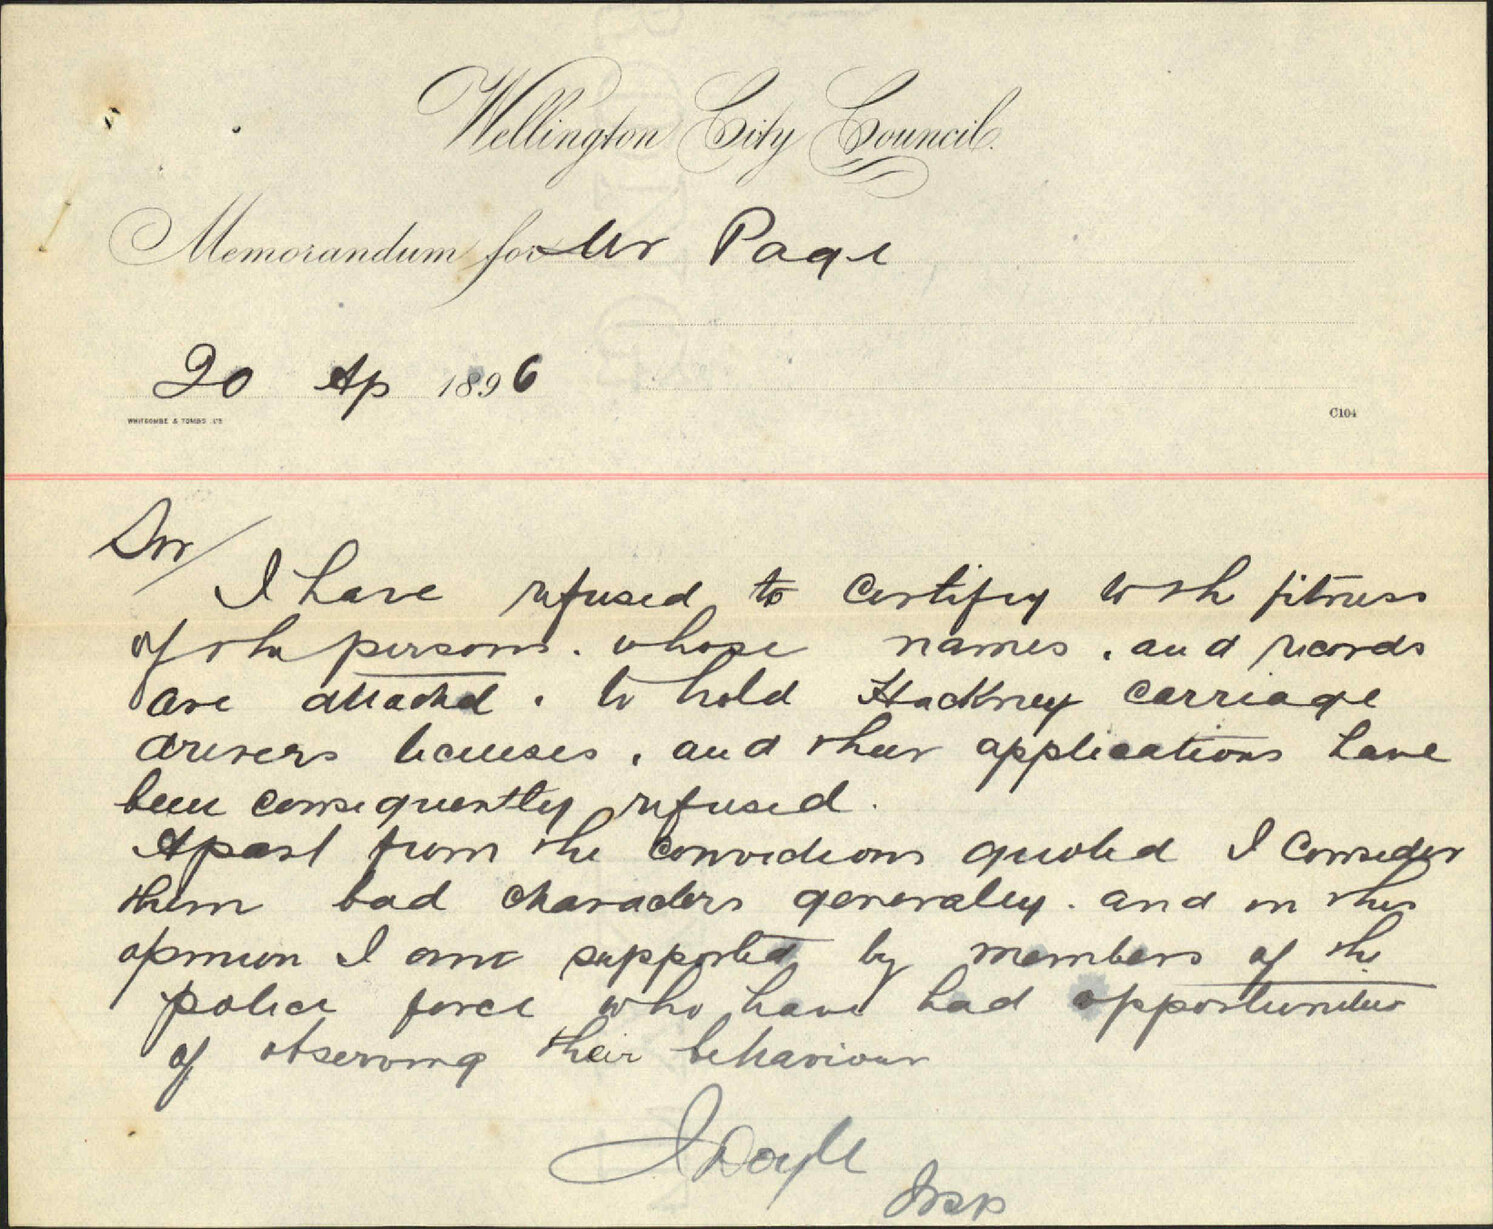 Wellington City Council.
Memorandum for Mr Page
20 Ap 1896
WHITCOMBE & TOMBS LTD
C104
Sir/
I have refused to certify to the fitness
of the persons. whose names. and records
are attached. to hold Hackney carriage
drivers licenses. and their applications have
been consequently refused.
Apart from the convictions quoted I consider
them bad characters generally. and in this
opinion I am supported by members of the
police force who have had opportunities
of observing their behaviour
J Doyle
Insp